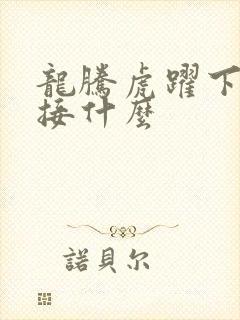 龍騰虎躍下
接什麼
諾貝尔